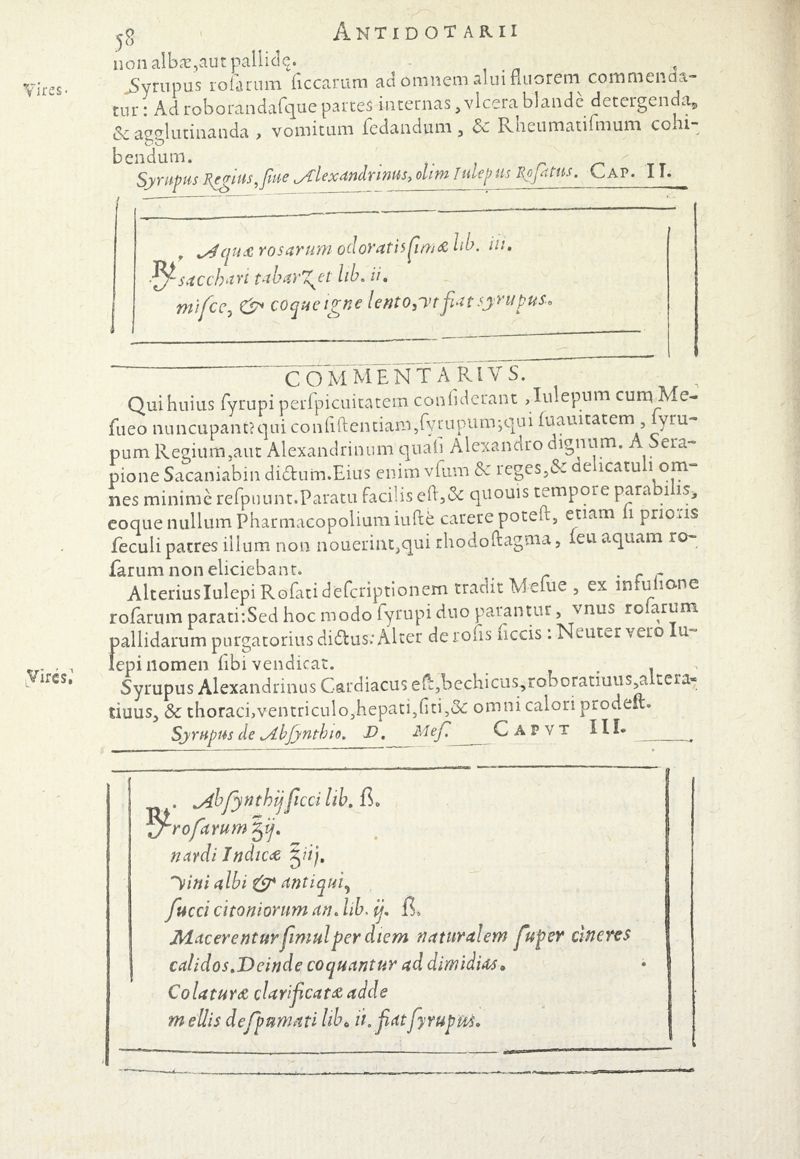 58 ANTIDOTARII
non albæ, aut pallidę.
Vires.
Syrupus rosarum ſiccarum ad omnem alui fluorem commenda-
tur: Ad roborandaſque partes internas, vlcera blandè detergenda,
& agglutinanda, vomitum ſedandum, & Rheumatiſmum cohi-
bendum.
Syrupus Regius, ſiue Alexandrinus, olim Iulepus Roſatus. CAP. II.
Aquæ rosarum odoratisſimæ lib. iii.
℞ sacchari tabarzet lib. ii.
miſce, & coque igne lento, vt fiat syrupus.
COMMENTARIVS.
Qui huius ſyrupi perſpicuitatem conſiderant, Iulepum cum Me-
ſueo nuncupant: qui conſiſtentiam, ſyrupum; qui ſuauitatem, ſyru-
pum Regium, aut Alexandrinum quaſi Alexandro dignum. A Sera-
pione Sacaniabin dictum. Eius enim vſum & reges, & delicatuli om-
nes minimè reſpuunt. Paratu facilis eſt, & quouis tempore parabilis,
eoque nullum Pharmacopolium iuſtè carere poteſt, etiam ſi prioris
ſeculi patres illum non nouerint, qui rhodoſtagma, ſeu aquam ro-
ſarum non eliciebant.
Alterius Iulepi Roſati deſcriptionem tradit Meſue, ex infuſione
roſarum parati: Sed hoc modo ſyrupi duo parantur, vnus roſarum
pallidarum purgatorius dictus: Alter de roſis ſiccis: Neuter verò Iu-
lepi nomen ſibi vendicat.
Vires.
Syrupus Alexandrinus Cardiacus eſt, bechicus, roboratiuus, altera-
tiuus, & thoraci, ventriculo, hepati, ſiti, & omni calori prodeſt.
Syrupus de Abſynthio. D. Meſ. CAPVT III.
Abſynthij ſicci lib. ß.
℞ roſarum ℥ij.
nardi Indicæ ℥iij.
Vini albi & antiqui,
ſucci citoniorum an. lib. ij. ß.
Macerentur ſimul per diem naturalem ſuper cineres
calidos. Deinde coquantur ad dimidias.
Colaturæ clarificatæ adde
mellis deſpumati lib. ii. fiat ſyrupus.